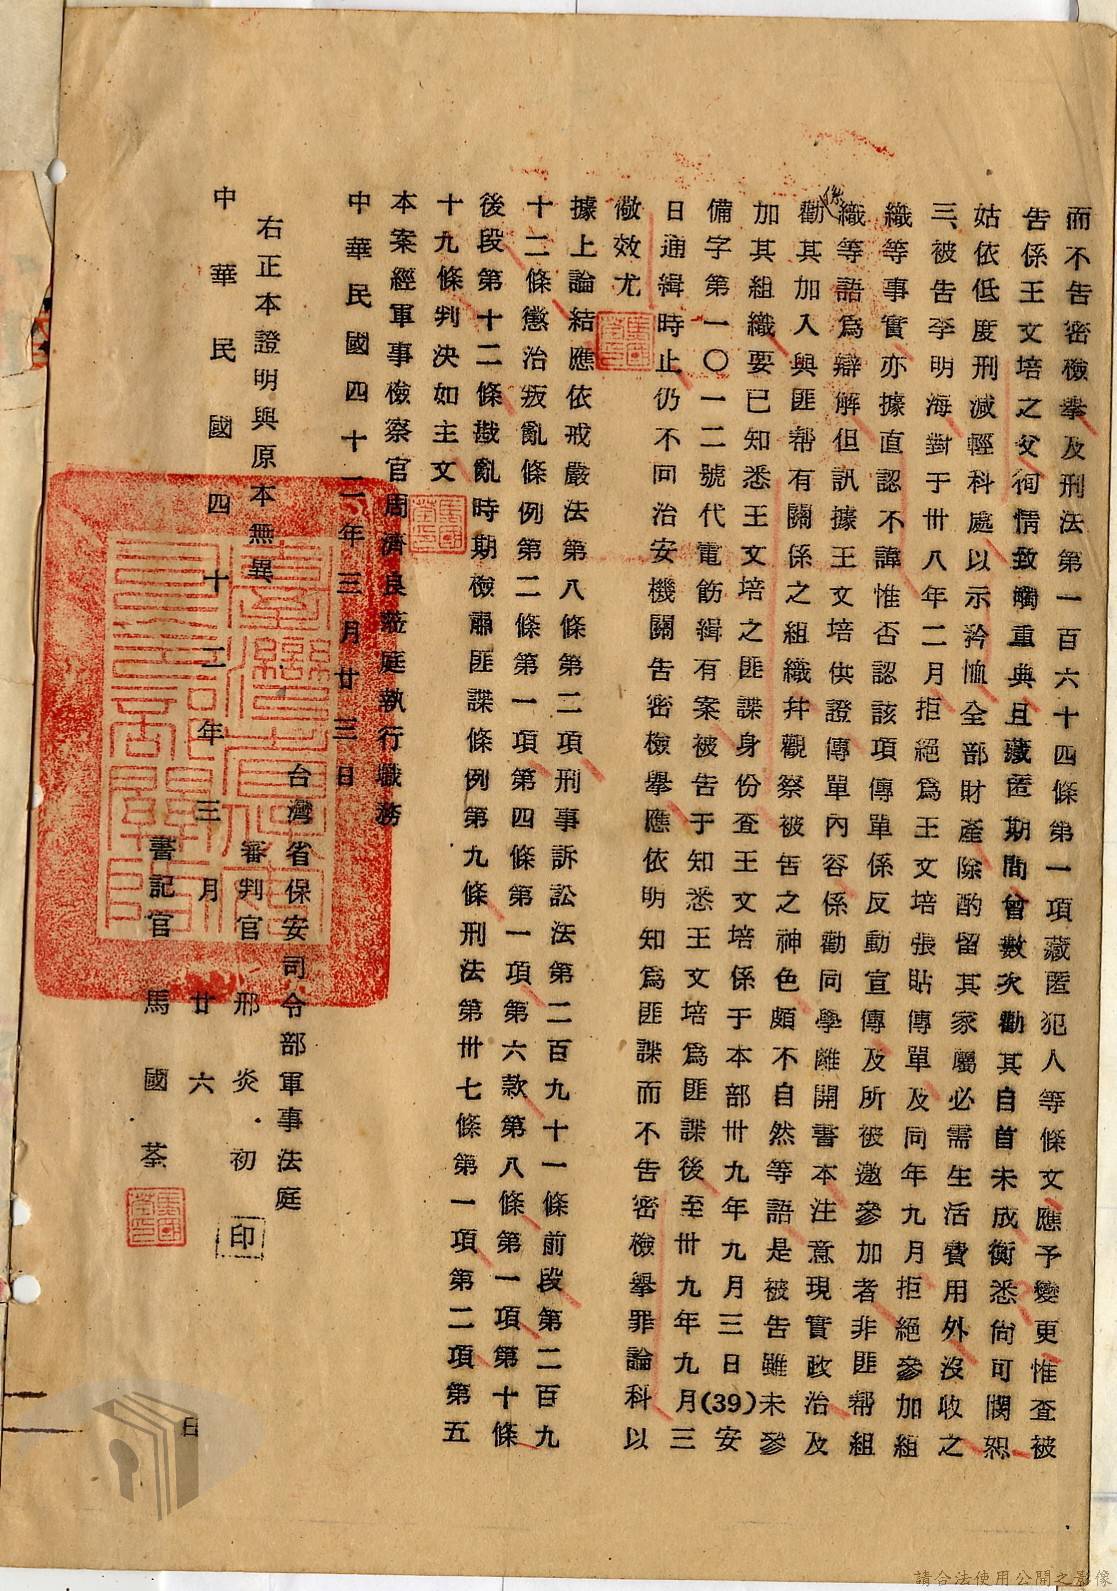 而不告密檢舉及刑法第一百六十四條第一項藏匿犯人等條文應予變更惟查被
告係王文培之父徇情致觸重典且藏匿期間曾數次勸其自首未成衡悉尚可憫恕
姑依低度刑減輕科處以示矜恤全部財產除酌留其家屬必需生活費用外沒收之
三、被告李明海對于卅八年二月拒絕為王文培張貼傳單及同年九月拒絕參加組
織等事實亦據直認不諱惟否認該項傳單係反動宣傳及所被邀參加者非匪幫組
織等語為辯解但訊據王文培供證傳單內容係勸同學離開書本注意現實政治及
係勸其加入與匪幫有關係之組織幷觀察被告之神色頗不自然等語是被告雖未參
加其組織要已知悉王文培之匪諜身份查王文培係于本部卅九年九月三日(39)安
備字第一〇一二號代電飭緝有案被告于知悉王文培為匪諜後至卅九年九月三
日通緝時止仍不向治安機關告密檢舉應依明知為匪諜而不告密檢舉罪論科以
儆效尤
據上論結應依戒嚴法第八條第二項刑事訴訟法第二百九十一條前段第二百九
十二條懲治叛亂條例第二條第一項第四條第一項第六款第八條第一項第十條
後段第十二條戡亂時期檢肅匪諜條例第九條刑法第卅七條第一項第二項第五
十九條判決如主文
本案經軍事檢察官周濟良蒞庭執行職務
中華民國四十二年三月廿三日
台灣省保安司令部軍事法庭
審判官 邢炎初 印
右正本證明與原本無異
中華民國四十二年三月廿六日
書記官 馬國荃
請合法使用公開之影像